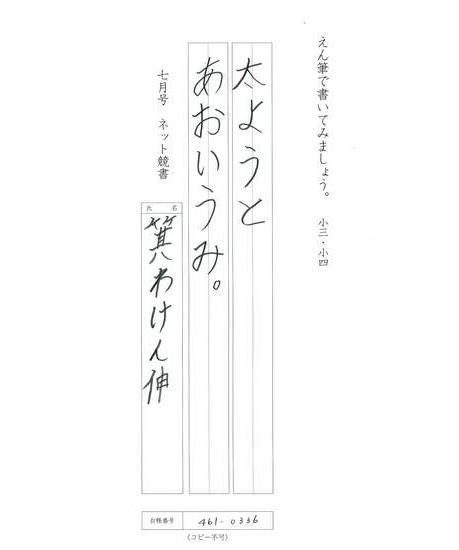 えん筆で書いてみましょう。 小三・小四
太ようと
あおいうみ。
七月号 ネット競書
氏名
箕わけん伸
台帳番号 461-0336
(コピー不可)